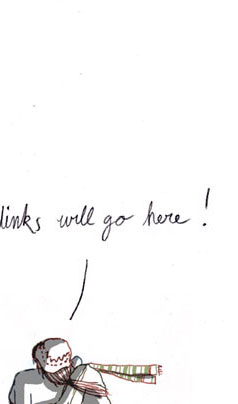 links will go here !